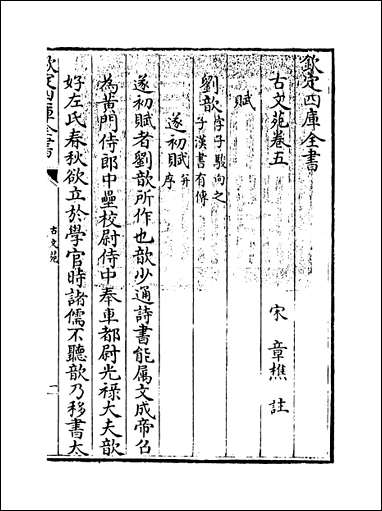 欽定四庫全書
古文苑卷五
宋 章樵 註
賦
劉歆 字子駿向之子漢書有傳
遂初賦 并序
遂初賦者劉歆所作也歆少通詩書能属文成帝召
為黃門侍郎中壘校尉侍中奉車都尉光祿大夫歆
好左氏春秋欲立於學官時諸儒不聽歆乃移書太
欽定四庫全書
古文苑